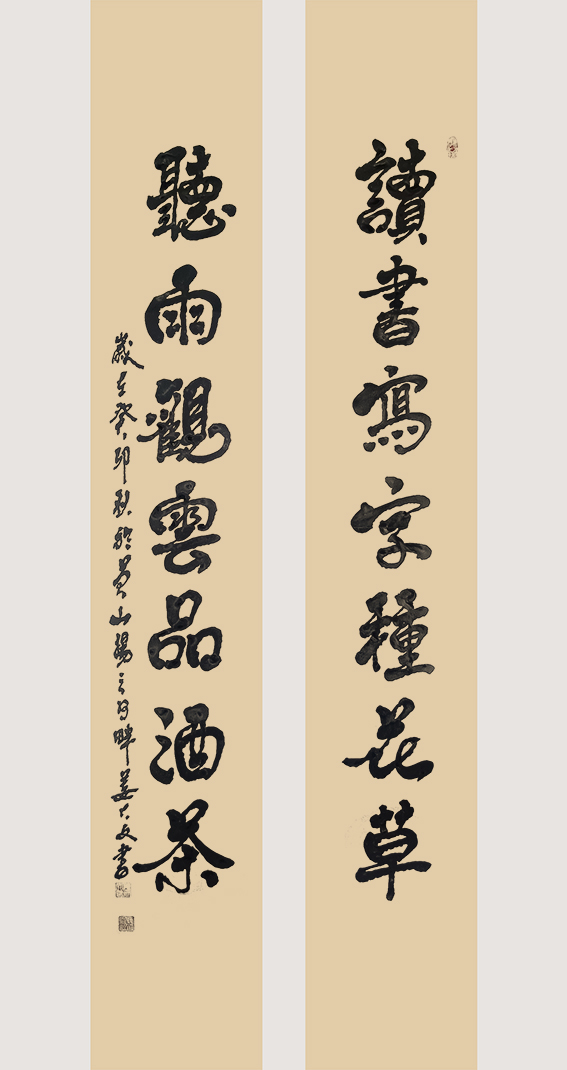 讀書寫字種花草
聽雨觀雲品酒茶
歲在癸卯秋於黃山湯口河畔姜大文書